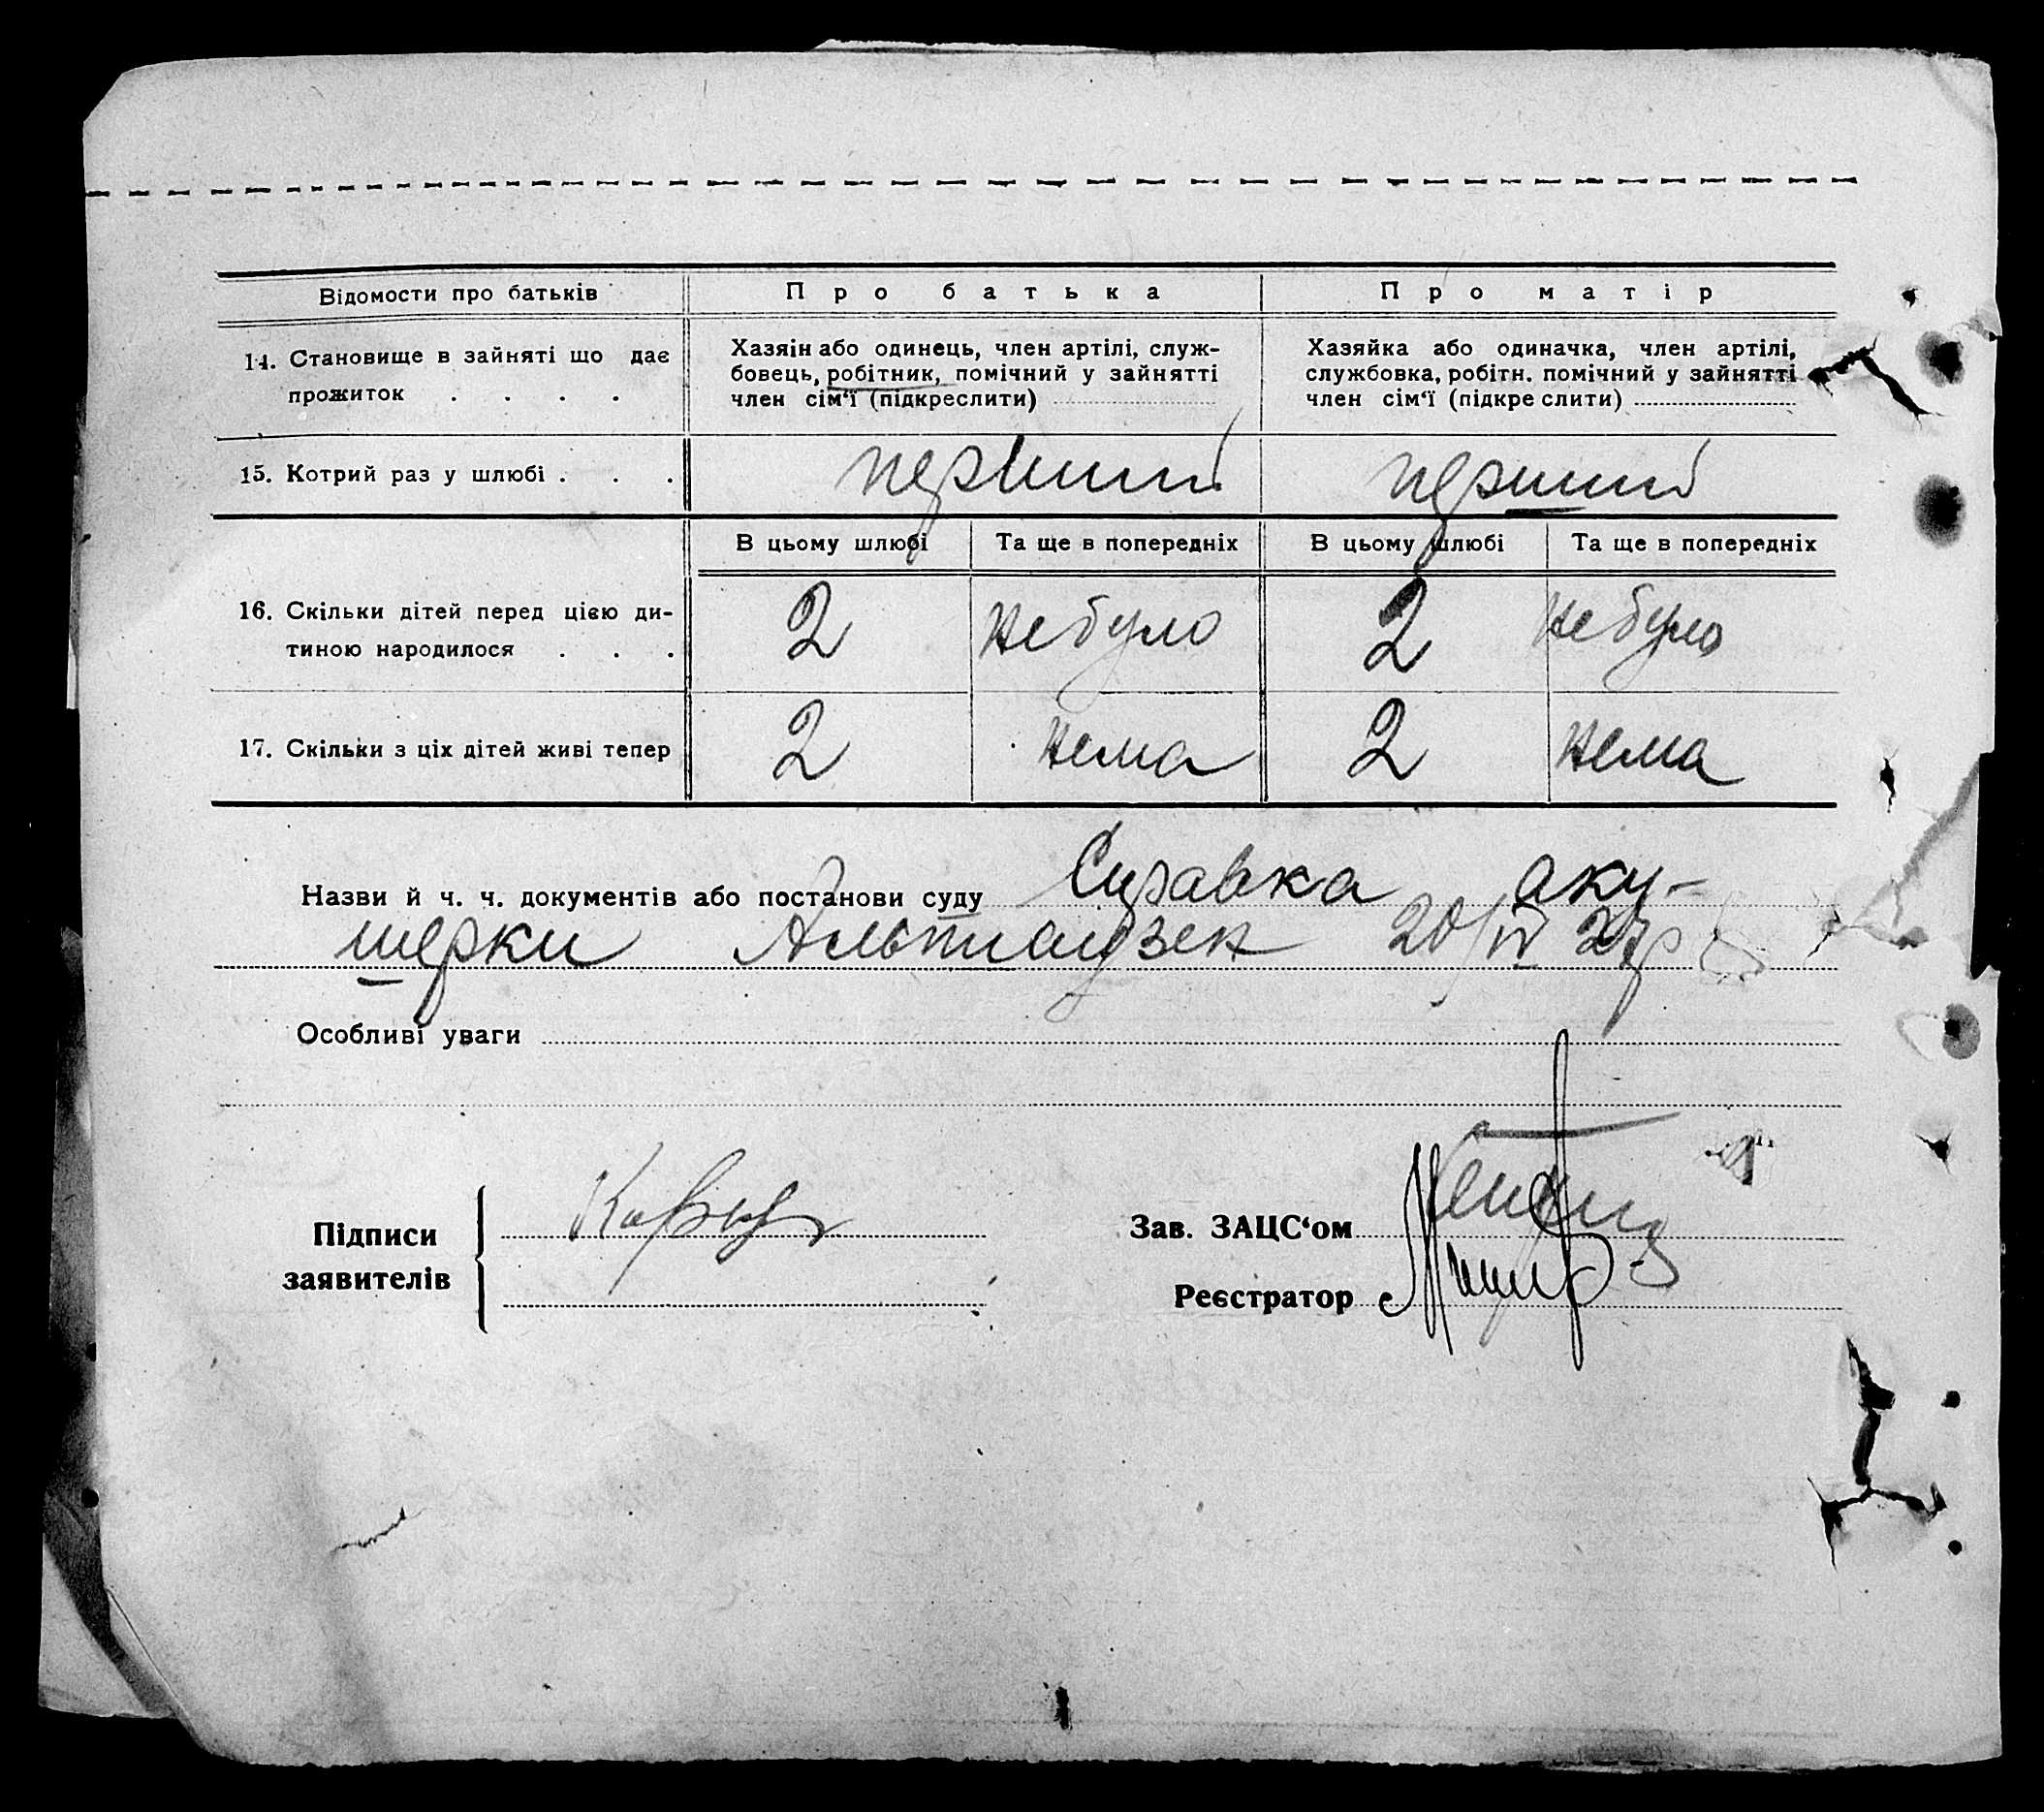 Відомости про батьків Про батька Про матір
14. Становище в зайняті що дає
прожиток . . . .
Хазяїн або одинець, член артілі, служ-
бовець, робітник, помічний у зайнятті
член сім‘ї (підкреслити)
Хазяйка або одиначка, член артілі,
службовка, робітн. помічний у зайнятті
член сім‘ї (підкреслити)
15. Котрий раз у шлюбі . . . перший перший
В цьому шлюбі Та ще в попередніх В цьому шлюбі Та ще в попередніх
16. Скільки дітей перед цією ди-
тиною народилося . . .
2 не було 2 не було
17. Скільки з ціх дітей живі тепер 2 нема 2 нема
Назви й ч. ч. документів або постанови суду Справка аку-
шерки 20/IV 27р
Особливі уваги
Підписи
заявителів
Зав. ЗАЦС‘ом
Реєстратор